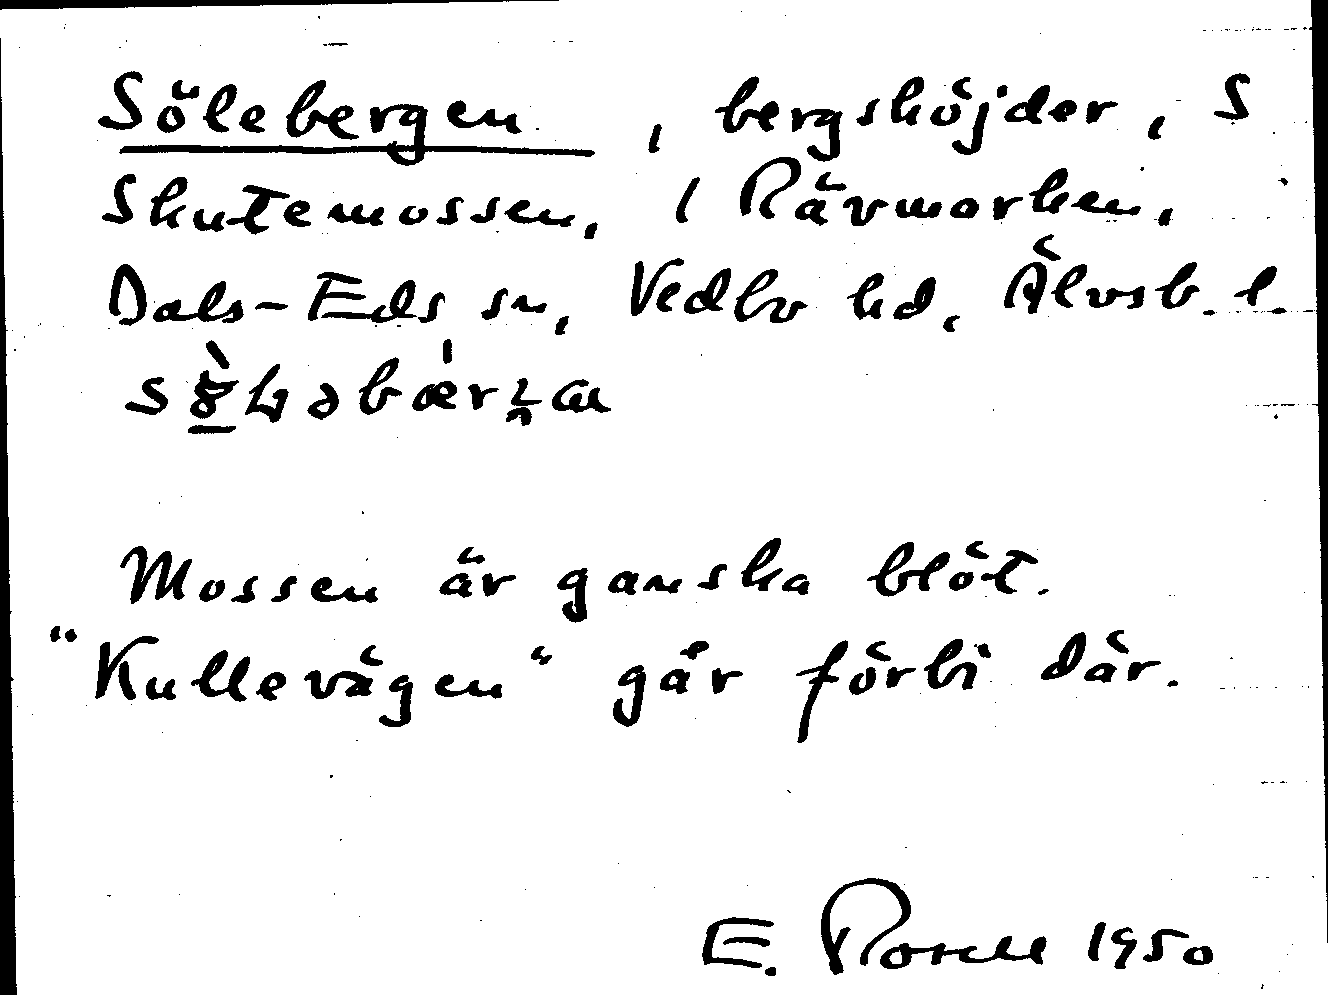 Sölebergen, bergshöjder, S
Skutemossen, i Rävmarken,
Dals-Eds sn, Vedbo hd, Älvsb. l.
Mossen är ganska blöt.
"Kullevägen" går förbi där.
E. Rosell 1950